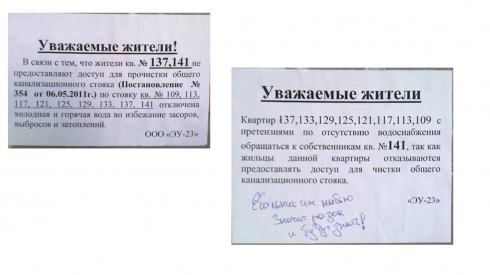 Уважаемые жители!
В связи с тем, что жители кв. № 137,141 не
предоставляют доступ для прочистки общего
канализационного стояка (Постановление №
354 от 06.05.2011г.) по стояку кв. № 109, 113,
117, 121, 125, 129, 133, 137, 141 отключена
холодная и горячая вода во избежание засоров,
выбросов и затоплений.
ООО «ЭУ-23»
Уважаемые жители
Квартир 137,133,129,125,121,117,113,109 с
претензиями по отсутствию водоснабжения
обращаться к собственникам кв. №141, так как
жильцы данной квартиры отказываются
предоставлять доступ для чистки общего
канализационного стояка.
«ЭУ-23»
разок
и